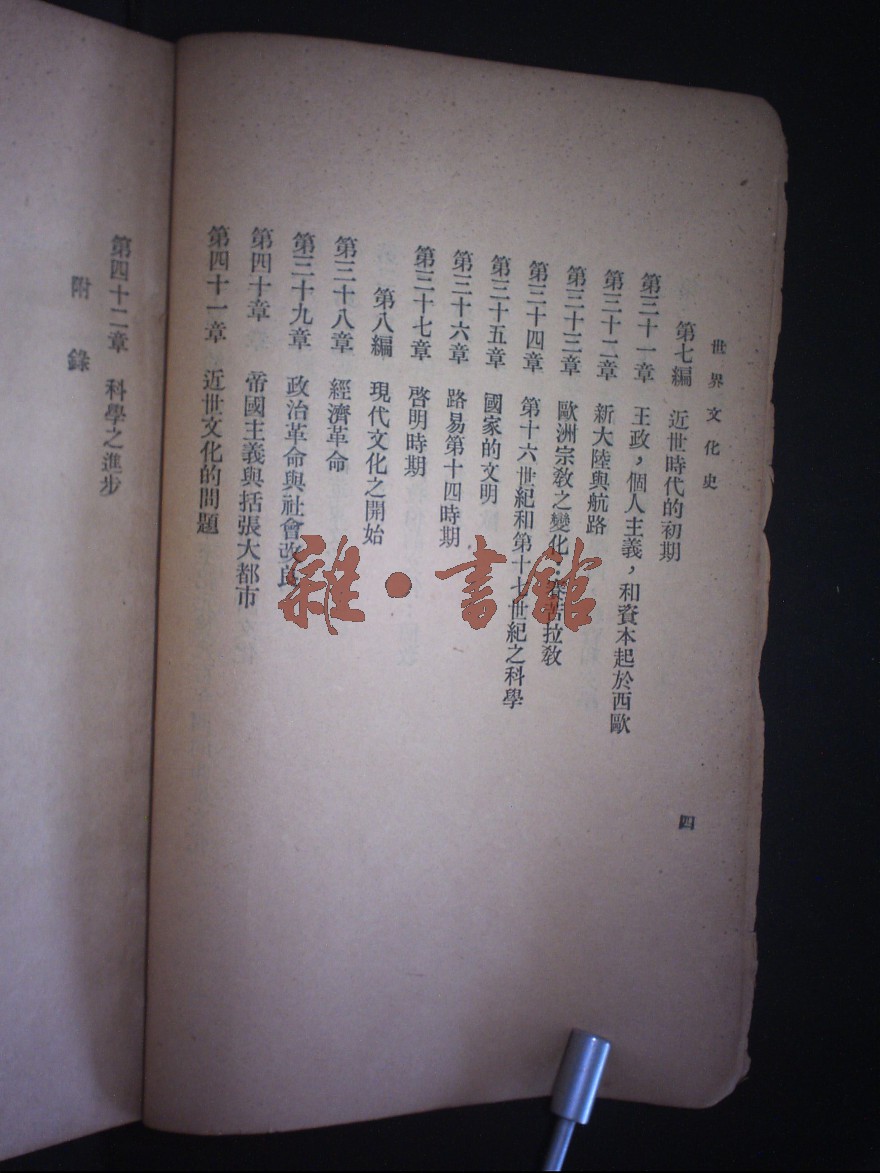 世界文化史
四
第七編 近世時代的初期
第三十一章 王政，個人主義，和資本起於西歐
第三十二章 新大陸與航路
第三十三章 歐洲宗教之變化：苦拉教
第三十四章 第十六世紀和第十七世紀之科學
第三十五章 國家的文明
第三十六章 路易第十四時期
第三十七章 啓明時期
第八編 現代文化之開始
第三十八章 經濟革命
第三十九章 政治革命與社會改良
第四十章 帝國主義與括張大都市
第四十一章 近世文化的問題
第四十二章 科學之進步
附錄
雜·書館